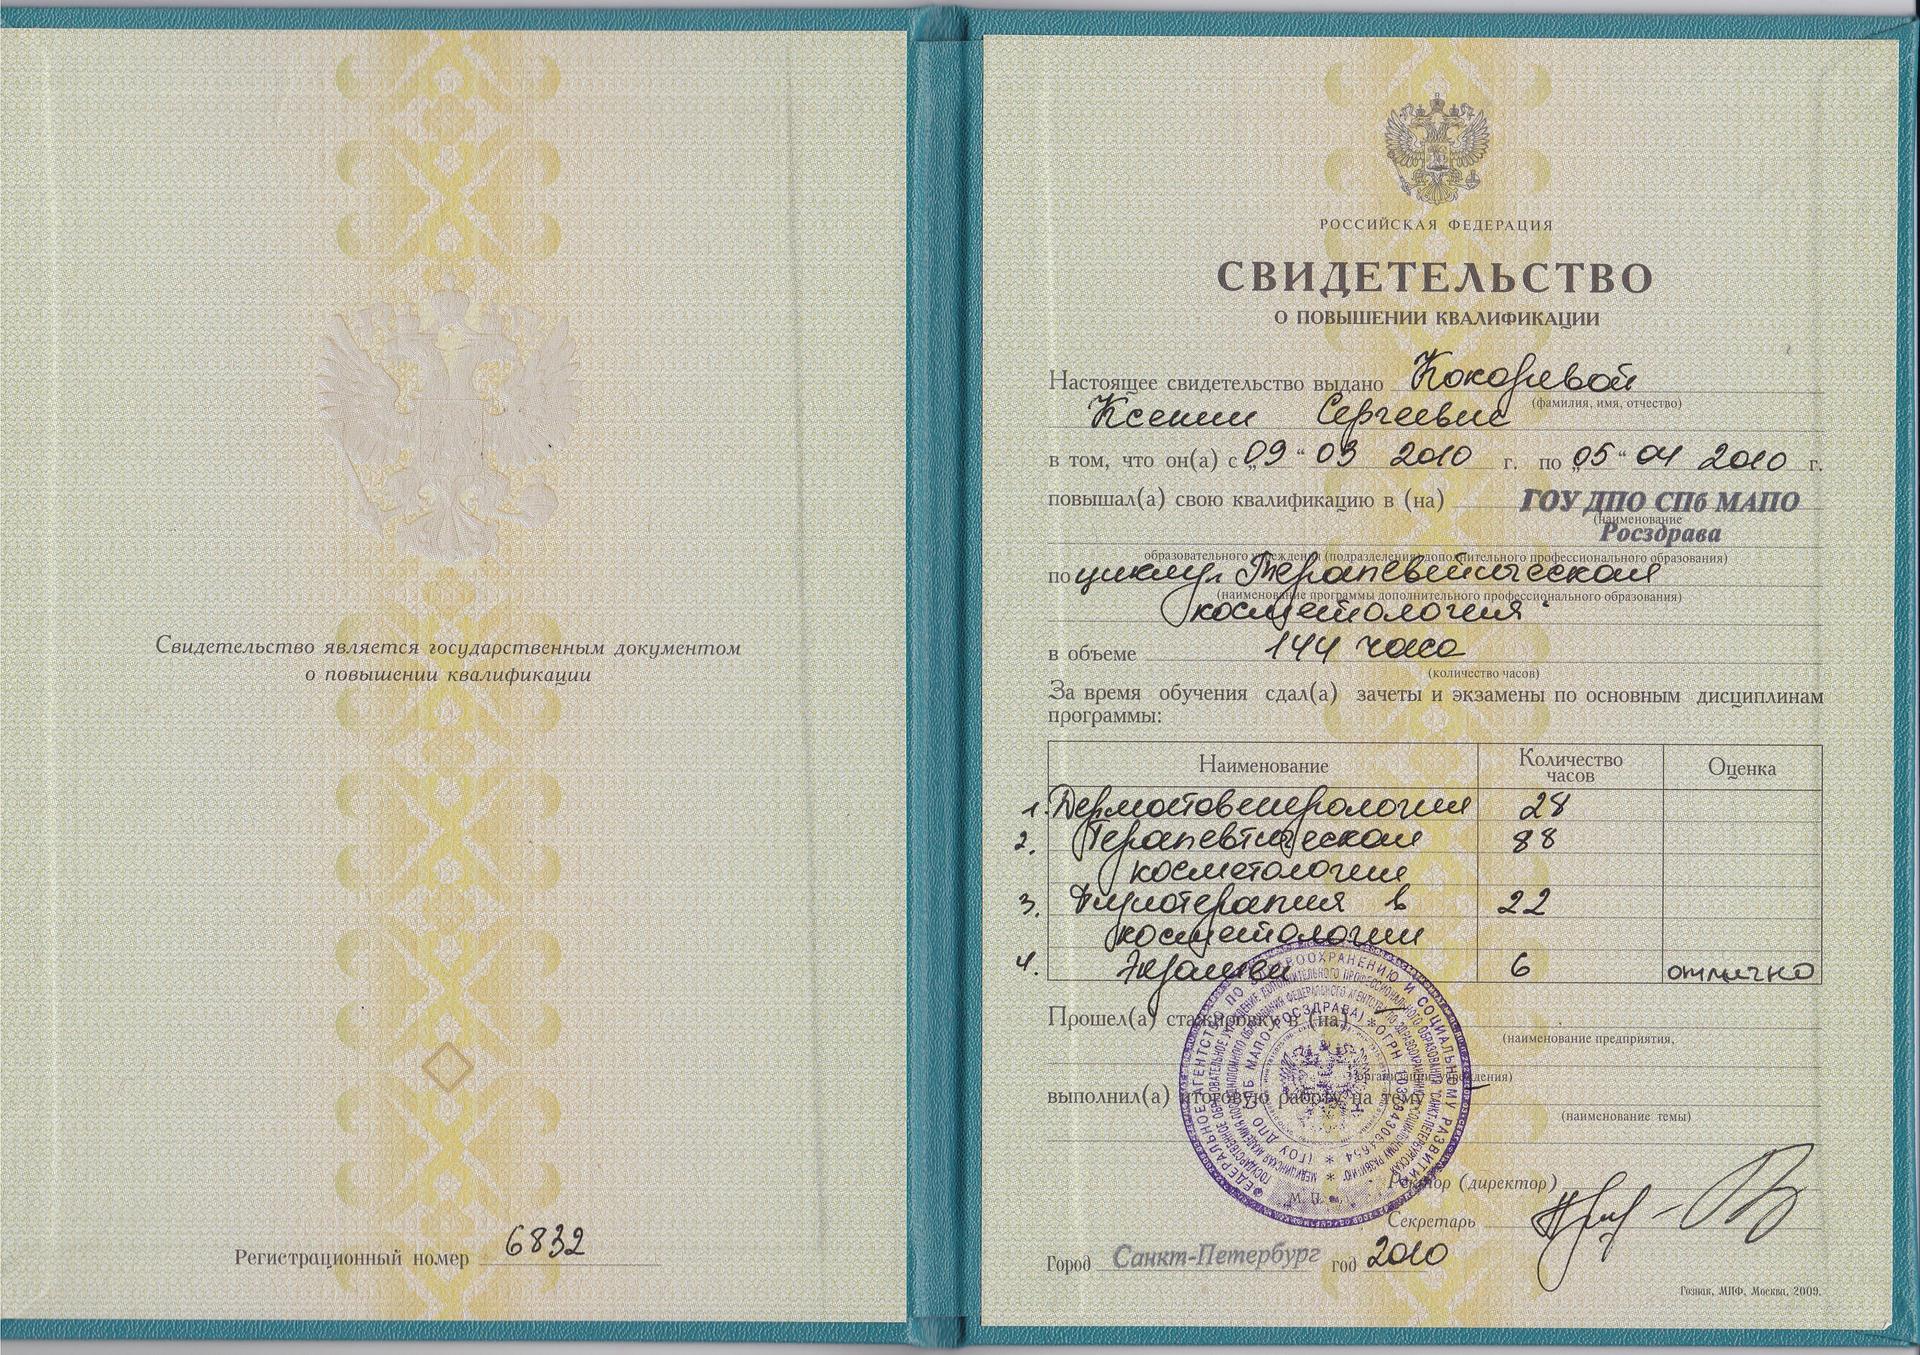 Свидетельство является государственным документом
о повышении квалификации
Регистрационный номер 6832
РОССИЙСКАЯ ФЕДЕРАЦИЯ
СВИДЕТЕЛЬСТВО
О ПОВЫШЕНИИ КВАЛИФИКАЦИИ
Настоящее свидетельство выдано Кокоревой
(фамилия, имя, отчество)
Ксении Сергеевне
в том, что он(а) с „09“ 03 2010 г. по „05“ 04 2010 г.
повышал(а) свою квалификацию в (на) ГОУ ДПО СПб МАПО
(наименование
Росздрава
образовательного учреждения (подразделения) дополнительного профессионального образования)
по циклу „Терапевтическая
(наименование программы дополнительного профессионального образования)
косметология“
в объеме 144 часа
(количество часов)
За время обучения сдал(а) зачеты и экзамены по основным дисциплинам
программы:
Наименование Количество часов Оценка
1. Дерматовенерология 28
2. Терапевтическая 88
косметология
3. Физиотерапия в 22
косметологии
4. Экзамен 6 отлично
Прошел(а) стажировку в (на)
(наименование предприятия,
организации, учреждения)
выполнил(а) итоговую работу на тему
(наименование темы)
ФЕДЕРАЛЬНОЕ АГЕНТСТВО ПО ЗДРАВООХРАНЕНИЮ И СОЦИАЛЬНОМУ РАЗВИТИЮ
(ГОУ ДПО СПБ МАПО РОСЗДРАВА) * ОГРН
М. П.
Ректор (директор)
Секретарь
Город Санкт-Петербург год 2010
Гознак, МПФ, Москва, 2009.